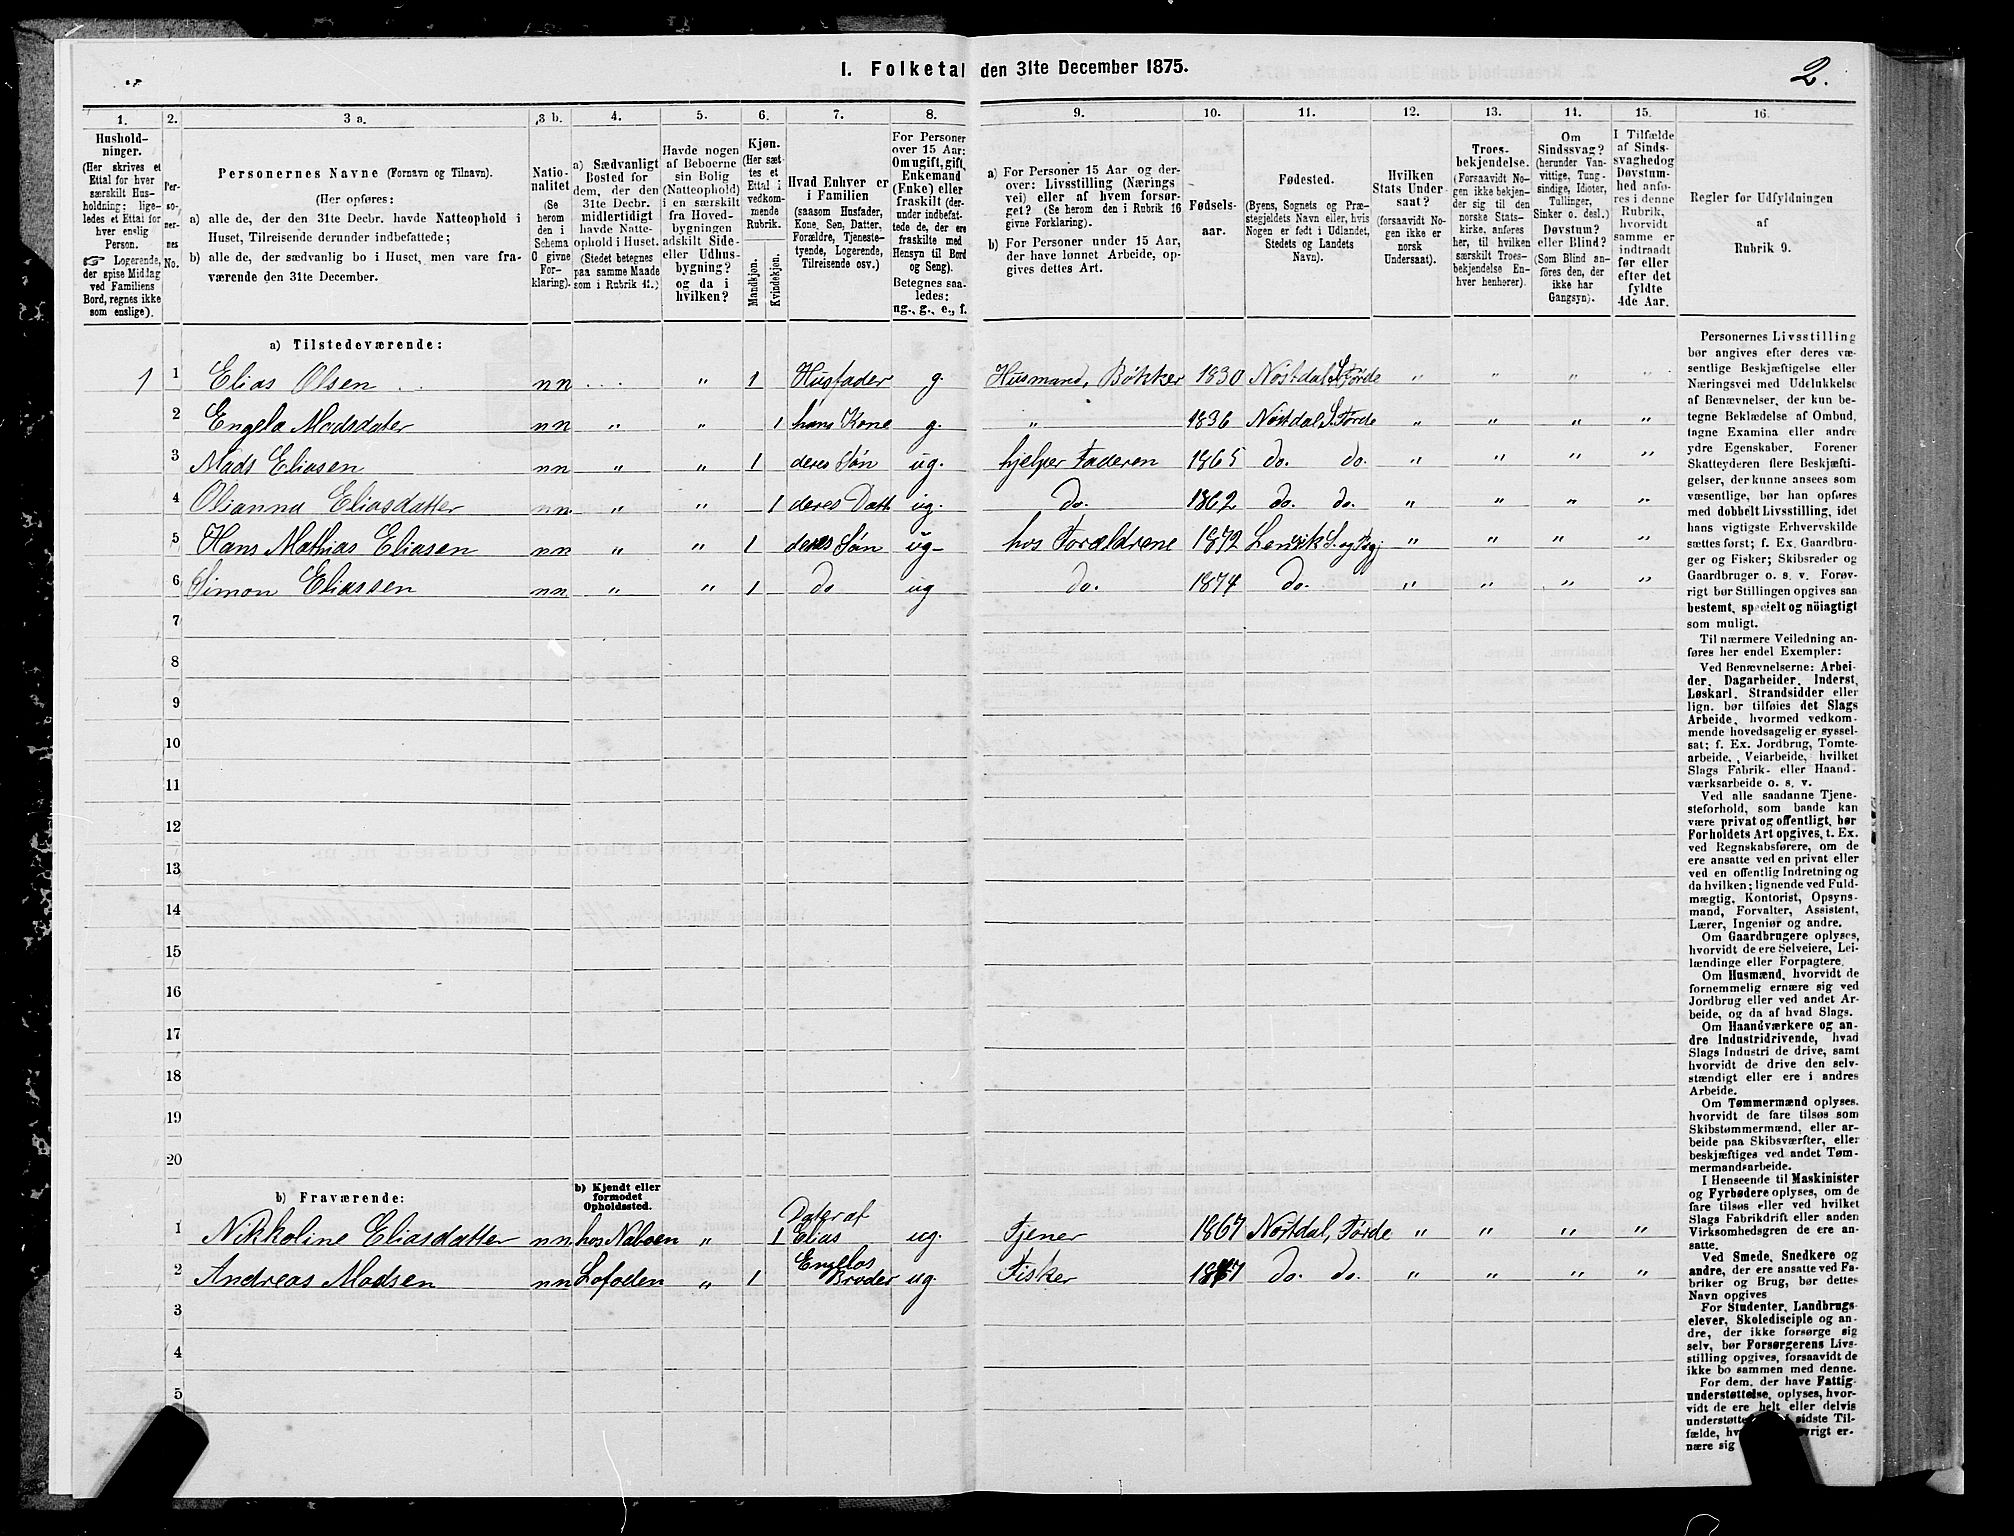 I. Folketal den 31te December 1875.
2.
1.
Hushold-
ninger.
(Her skrives et
Ettal for hver
særskilt Hus-
holdning; lige-
ledes et Ettal for
hver enslig
Person.
☞ Logerende,
der spise Middag
ved Familiens
Bord, regnes ikke
som enslige).
2.
Per-
so-
ner-
nes
No.
3 a.
Personernes Navne (Fornavn og Tilnavn).
(Her opføres:
a) alle de, der den 31te Decbr. havde Natteophold i
Huset, Tilreisende derunder indbefattede;
b) alle de, der sædvanlig bo i Huset, men vare fra-
værende den 31te December.
3 b.
Natio-
nalitet
(Se
herom
den i
Schema
O givne
For-
klaring).
4.
a) Sædvanligt
Bosted for
dem, der den
31te Decbr.
midlertidigt
havde Natte-
ophold i Huset.
(Stedet betegnes
paa samme Maade
som i Rubrik 11.)
5.
Havde nogen
af Beboerne
sin Bolig
(Natteophold)
i en særskilt
fra Hoved-
bygningen
adskilt Side-
eller Udhus-
bygning?
og da i
hvilken?
6.
Kjøn.
(Her sæt-
tes et
Ettal i
vedkom-
mende
Rubrik.
Mandkjøn.
Kvindekjøn.
7.
Hvad Enhver er
i Familien
(saasom Husfader,
Kone, Søn, Datter,
Forældre, Tjeneste-
tyende, Logerende,
Tilreisende osv.)
8.
For Personer
over 15 Aar:
Om ugift, gift,
Enkemand
(Enke) eller
fraskilt (der-
under indbefat-
tede de, der ere
fraskilte med
Hensyn til Bord
og Seng).
Betegnes saa-
ledes:
ug., g., e., f.
9.
a) For Personer 15 Aar og der-
over: Livsstilling (Nærings
vei) eller af hvem forsør-
get? (Se herom den i Rubrik 16
givne Forklaring).
b) For Personer under 15 Aar,
der have lønnet Arbeide, op-
gives dettes Art.
10.
Fødsels-
aar.
11.
Fødested.
(Byens, Sognets og Præ-
stegjeldets Navn eller, hvis
Nogen er født i Udlandet,
Stedets og Landets
Navn).
12.
Hvilken
Stats Under-
saat?
(forsaavidt No-
gen ikke er
norsk
Undersaat).
13.
Troes-
bekjendelse.
(Forsaavidt No-
gen ikke bekjen-
der sig til den
norske Stats-
kirke, anføres
her, til hvilken
særskilt Troes-
bekjendelse En-
hver henhører).
14.
Om
Sindssvag?
(herunder Van-
vittige, Tung-
sindige, Idioter,
Tullinger,
Sinker o. desl.)
Døvstum?
eller Blind?
(Som Blind an-
føres den, der
ikke har
Gangsyn).
15.
I Tilfælde
af Sinds-
svaghed og
Døvstum-
hed anfø-
res i denne
Rubrik,
hvorvidt
samme er
indtraadt
før eller
efter det
fyldte
4de Aar.
16.
Regler for Udfyldningen
af
Rubrik 9.
a) Tilstedeværende:
1 1 Elias Olsen nn " 1 Husfader g. Husmand, Bøkker 1830 Nøstdal S. Førde " " " "
2 Engela Madsdater nn " " 1 hans Kone g. " 1836 Nøstdal S. Førde " " " "
3 Mads Eliasen nn " " 1 deres Søn ug. hjelper Faderen 1865 do. do. " " " "
4 Olianna Eliasdatter nn " " 1 deres Datt ug. do. 1862 do. do. " " " "
5 Hans Mathias Eliasen nn " " 1 deres Søn ug hos Forældrene 1872 " " " "
6 Simon Eliassen nn " " 1 do ug do. 1874 do. " " " "
7
8
9
10
11
12
13
14
15
16
17
18
19
20
b) Fraværende:
b) Kjendt eller
formodet
Opholdssted.
1 Nikkoline Eliasdatter nn. hos Naboen " 1 Dater af Elias ug. Tjener 1867 Nøstdal, Førde " " " "
2 Andreas Madsen nn Lofoden " 1 Engelas Broder ug. Fisker do. do. " " " "
3
4
5
Personernes Livsstilling
bør angives efter deres væ-
sentlige Beskjæftigelse eller
Næringsvei med Udelukkelse
af Benævnelser, der kun be-
tegne Beklædelse af Ombud,
tagne Examina eller andre
ydre Egenskaber. Forener
Skatteyderen flere Beskjæfti-
gelser, der kunne ansees som
væsentlige, bør han opføres
med dobbelt Livsstilling, idet
hans vigtigste Erhvervskilde
sættes først; f. Ex. Gaardbru-
ger og Fisker; Skibsreder og
Gaardbruger o. s. v. Forøv-
rigt bør Stillingen opgives saa
bestemt, specielt og nöiagtigt
som muligt.
Til nærmere Veiledning an-
føres her endel Exempler:
Ved Benævnelserne: Arbei-
der, Dagarbeider, Inderst,
Løskarl, Strandsidder eller
lign. bør tilføies det Slags
Arbeide, hvormed vedkom-
mende hovedsagelig er syssel-
sat; f. Ex. Jordbrug, Tomte-
arbeide, Veiarbeide, hvilket
Slags Fabrik- eller Haand-
værksarbeide o. s. v.
Ved alle saadanne Tjene-
steforhold, som baade kan
være privat og offentligt, bør
Forholdets Art opgives, t. Ex.
ved Regnskabsførere, om de
ere ansatte ved en privat eller
ved en offentlig Indretning og
da hvilken; lignende ved Fuld-
mægtig, Kontorist, Opsyns-
mand, Forvalter, Assistent,
Lærer, Ingeniør og andre.
Om Gaardbrugere oplyses,
hvorvidt de ere Selveiere, Lei-
lændinge eller Forpagtere.
Om Husmænd, hvorvidt de
fornemmelig ernære sig ved
Jordbrug eller ved andet Ar-
beide, og da af hvad Slags.
Om Haandværkere og an-
dre Industridrivende, hvad
Slags Industri de drive, samt
hvorvidt de drive den selv-
stændigt eller ere i andres
Arbeide.
Om Tømmermænd oplyses,
hvorvidt de fare tilsøs som
Skibstømmermænd, eller ar-
beide paa Skibsværfter, eller
beskjæftiges ved andet Tøm-
mermandsarbeide.
I Henseende til Maskinister
og Fyrbødere oplyses, om de
fare tilsøs eller ved hvilket
Slags Fabrikdrift eller anden
Virksomhedsgren de ere an-
satte.
Ved Smede, Snedkere og
andre, der ere ansatte ved Fa-
briker og Brug, bør dettes
Navn opgives
For Studenter, Landbrugs-
elever, Skoledisciple og an-
dre, der ikke forsørge sig
selv, bør Forsørgerens Livs-
stilling opgives, forsaavidt de
ikke bo sammen med denne.
For dem, der have Fattig-
understøttelse, oplyses, hvor-
vidt de ere helt eller delvis
understøtte sidste Til-
fælde, vrigt er-
nære sig